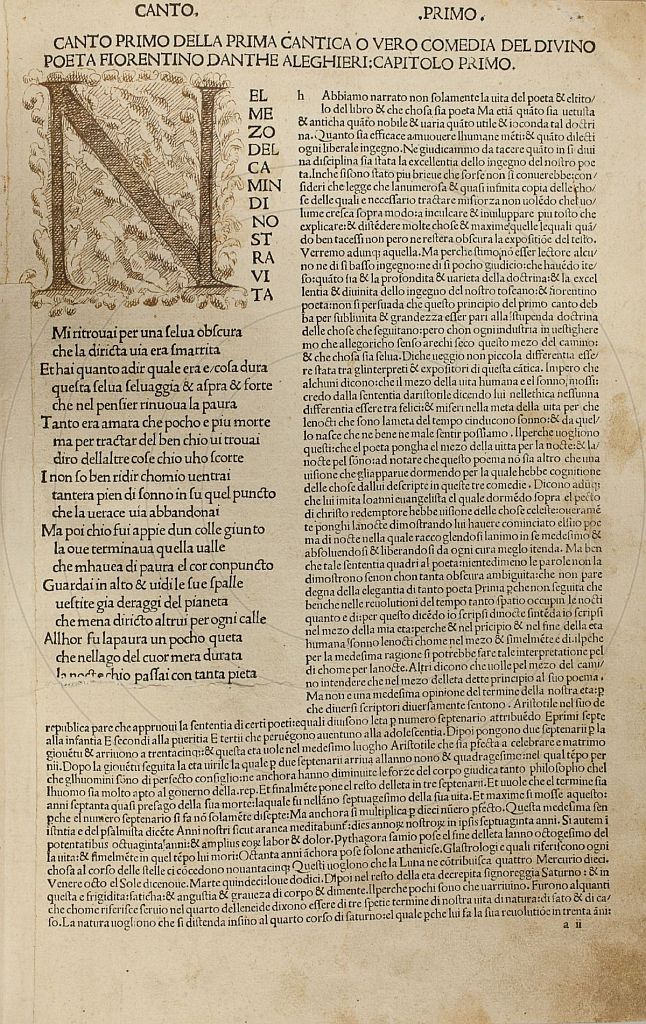 CANTO. .PRIMO.
CANTO PRIMO DELLA PRIMA CANTICA O VERO COMEDIA DEL DIVINO
POETA FIORENTINO DANTHE ALEGHIERI:CAPITOLO PRIMO.
N
EL
ME
ZO
DEL
CA
MIN
DI
NO
ST
RA
VI
TA
Mi ritrouai per una selua obscura
che la diricta uia era smarrita
Et hai quanto adir quale era e/cosa dura
questa selua seluaggia & aspra & forte
che nel pensier rinuoua la paura
Tanto era amara che pocho e piu morte
ma per tractar del ben chio ui trouai
diro dellaltre cose chio uho scorte
I non so ben ridir chomio uentrai
tantera pien di sonno in su quel puncto
che la uerace uia abbandonai
Ma poi chio fui appie dun colle giunto
la oue terminaua quella ualle
che mhauea di paura el cor conpuncto
Guardai in alto & uidi le sue spalle
uestite gia deraggi del pianeta
che mena diricto altrui per ogni calle
Allhor fu lapaura un pocho queta
che nellago del cuor mera durata
la nocte chio passai con tanta pieta
h Abbiamo narrato non solamente la uita del poeta & eltito/
lo del libro & che chosa sia poeta Ma etiã quãto sia uetusta
& anticha quãto nobile & uaria quãto utile & ioconda tal doctri
na. Quanto sia efficace amouere lhumane mẽti: & quãto dilecti
ogni liberale ingegno. Ne giudicammo da tacere quãto in si diui
na disciplina sia stata la excellentia dello ingegno del nostro poe
ta. Inche sisono stato piu brieue che forse non si conuerebbe: con/
sideri che legge che lanumerosa & quasi infinita copia delle cho/
se delle quali e necessario tractare misforza non uolẽdo chel uo/
lume cresca sopra modo: a inculcare & inuiluppare piu tosto che
explicare: & distẽdere molte chose & maxime quelle lequali quã
do ben tacessi non pero ne restera obscura la expositiõe del testo.
Verremo adunq; aquella. Ma perche stimo nõ esser lectore alcu/
no ne di si basso ingegno: ne di si pocho giudicio: che hauẽdo ite/
so: quãto sia & la profondita & uarieta della doctrina: & la excel
lentia & diuinita dello ingegno del nostro toscano: & fiorentino
poeta: non si persuada che questo principio del primo canto deb
ba per sublimita & grandezza esser pari alla stupenda doctrina
delle chose che seguitano: pero chon ogni industria in uestighere
mo che allegoricho senso arechi seco questo mezo del camino:
& che chosa sia selua. Diche ueggio non piccola differentia esse/
re stata tra glinterpreti & expositori di questa cãtica. Impero che
alchuni dicono: che il mezo della uita humana e el sonno, mossi:
credo dalla sententia daristotile dicendo lui nellethica nessuna
differentia essere tra felici: & miseri nella meta della uita per che
lenocti che sono lameta del tempo cinducono sonno: & da quel/
lo nasce che ne bene ne male sentir possiamo. Ilperche uogliono
questi: che el poeta pongha el mezo della uita per la nocte: & la/
nocte pel sono: ad notare che questo poema nõ sia altro che una
uisione che gliapparue dormendo per laquale hebbe cognitione
delle chose dallui descripte in queste tre comedie. Dicono adũq;
che lui imita Ioanni euangelista el quale dormẽdo sopra el pecto
di christo redemptore hebbe uisione delle chose celeste: oueramẽ
te ponghi lanocte dimostrando lui hauere cominciato elsuo poe
ma di nocte nella quale raccoglendosi lanimo in se medesimo &
absoluendosi & liberandosi da ogni cura meglo itenda. Ma ben
che tale sentẽtia quadri al poeta: nientedimeno le parole non la
dimostrono senon chon tanta obscura ambiguita: che non pare
degna della elegantia di tanto poeta Prima pche non seguita che
benche nelle reuolutioni del tempo tanto spatio occupin le nocti
quanto e di: per questo dicẽdo io scripsi di nocte sintẽda io scripsi
nel mezo della mia eta: perche & nel pricipio & nel fine della eta
humana sonno lenocti chome nel mezo & similmẽte e di. ilpche
per la medesima ragione si potrebbe fare tale interpretatione pel
di chome per lanocte. Altri dicono che uolle pel mezo del cami/
no intendere che nel mezo delleta dette principio al suo poema.
Ma non e una medesima opinione del termine della nostra eta: p
che diuersi scriptori diuersamente sentono. Aristotile nel suo de
republica pare che appruoui la sententia di certi poeti: equali diuisono leta p numero septenario attribuẽdo E primi septe
alla infantia E secondi alla pueritia E tertii che peruẽgono auentuno alla adolescentia. Dipoi pongono due septenarii p la
giouẽtu & arriuono a trentacinq; & questa eta uole nel medesimo luogho Aristotile che sia pfecta a celebrare e matrimo
nii. Dopo la giouẽtu seguita la eta uirile la quale p due septenarii arriua allanno nono & quadragesimo: nel qual tẽpo per
che glhuomini sono di perfecto consiglio: ne anchora hanno diminuite le forze del corpo giudica tanto philosopho chel
lhuomo sia molto apto al gouerno della. rep. Et finalmẽte pone el resto delleta in tre septenarii. Et uuole che el termine sia
anni septanta quasi presago della sua morte: laquale fu nellãno septuagesimo della sua uita. Et maxime si mosse aquesto:
pche el numero septenario si fa nõ solamẽte disepte: Ma anchora si multiplica p dieci nũero pfecto. Questa medesima sen
tẽtia e del psalmista dicẽte Anni nostri sicut aranea meditabunt: dies annoꝝ nostroꝝ in ipsis septuaginta anni. Si autem i
potentatibus octuaginta anni: & amplius eoꝝ labor & dolor. Pythagora samio pose el fine delleta lanno octogesimo del
la uita: & similmẽte in quel tẽpo lui mori: Octanta anni ãchora pose solone atheniese. Glastrologi e quali riferiscono ogni
chosa al corso delle stelle ci cõcedono nouantacinq; Questi uoglono che la Luna ne cõtribuisca quattro Mercurio dieci.
Venere octo el Sole dicenoue. Marte quindeci: Ioue dodici. Dipoi nel resto della eta decrepita signoreggia Saturno: & in
questa e frigidita: faticha: & angustia & graueza di corpo & dimente. Ilperche pochi sono che uarriuino. Furono alquanti
che chome riferisce seruio nel quarto delleneide dixono essere di tre spetie termine di nostra uita di natura: di fato & di ca/
so. La natura uogliono che si distenda insino al quarto corso di saturno: el quale pche lui fa la sua reuolutiõe in trenta ãni:
a ii